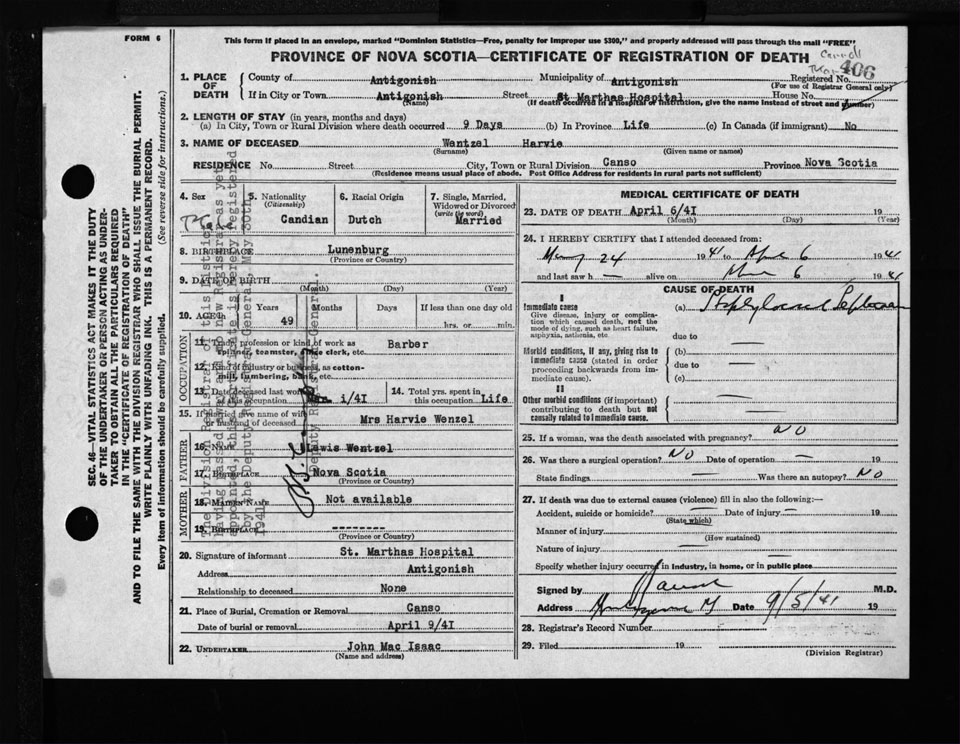 FORM 6
This form if placed in an envelope, marked "Dominion Statistics—Free, penalty for improper use $300," and properly addressed will pass through the mail "FREE"
PROVINCE OF NOVA SCOTIA—CERTIFICATE OF REGISTRATION OF DEATH
406
1. PLACE OF DEATH
County of Antigonish Municipality of Antigonish Registered No.
(For use of Registrar General only)
If in City or Town Antigonish Street St Marthas Hospital House No.
(Name) (If death occurred in a hospital or institution, give the name instead of street and number)
2. LENGTH OF STAY (in years, months and days)
(a) In City, Town or Rural Division where death occurred 9 Days (b) In Province Life (c) In Canada (if immigrant) No
3. NAME OF DECEASED Wentzel Harvie
(Surname) (Given name or names)
RESIDENCE No. Street City, Town or Rural Division Canso Province Nova Scotia
(Residence means usual place of abode. Post Office Address for residents in rural parts not sufficient)
4. Sex
5. Nationality (Citizenship) Candian
6. Racial Origin Dutch
7. Single, Married, Widowed or Divorced (write the word) Married
8. BIRTHPLACE Lunenburg
(Province or Country)
9. DATE OF BIRTH
(Month) (Day) (Year)
10. AGE Years 49 Months Days If less than one day old
hrs. or min.
OCCUPATION
11. Trade, profession or kind of work as spinner, teamster, office clerk, etc. Barber
12. Kind of industry or business, as cotton-mill, lumbering, bank, etc.
13. Date deceased last worked at this occupation Mar. i/4I
14. Total yrs. spent in this occupation Life
15. If married give name of wife or husband of deceased Mrs Harvie Wenzel
FATHER
16. Name Lewis Wentzel
17. Birthplace Nova Scotia
(Province or Country)
MOTHER
18. Maiden Name Not available
19. Birthplace --------
(Province or Country)
20. Signature of informant St. Marthas Hospital
Address Antigonish
Relationship to deceased None
21. Place of Burial, Cremation or Removal Canso
Date of burial or removal April 9/4I
22. UNDERTAKER John Mac Isaac
(Name and address)
MEDICAL CERTIFICATE OF DEATH
23. DATE OF DEATH April 6/4I 19
(Month) (Day) (Year)
24. I HEREBY CERTIFY that I attended deceased from:
24 1941 to April 6 1941
and last saw h — alive on April 6 1941
CAUSE OF DEATH
I
Immediate cause
Give disease, injury or complication which caused death, not the mode of dying, such as heart failure, asphyxia, asthenia, etc.
(a)
due to —
Morbid conditions, if any, giving rise to immediate cause (stated in order proceeding backwards from immediate cause).
(b)
due to
(c)
II
Other morbid conditions (if important) contributing to death but not causally related to immediate cause.
25. If a woman, was the death associated with pregnancy? NO
26. Was there a surgical operation? NO Date of operation —
State findings Was there an autopsy? NO
27. If death was due to external causes (violence) fill in also the following:—
Accident, suicide or homicide? — Date of injury — 19
(State which)
Manner of injury
(How sustained)
Nature of injury —
Specify whether injury occurred in industry, in home, or in public place —
Signed by M.D.
Address Date 9/5/41 19
28. Registrar's Record Number
29. Filed 19
(Division Registrar)
SEC. 46—VITAL STATISTICS ACT MAKES IT THE DUTY
OF THE UNDERTAKER OR PERSON ACTING AS UNDER-
TAKER TO OBTAIN ALL THE PARTICULARS REQUIRED
IN THE "CERTIFICATE OF REGISTRATION OF DEATH"
AND TO FILE THE SAME WITH THE DIVISION REGISTRAR WHO SHALL ISSUE THE BURIAL PERMIT.
WRITE PLAINLY WITH UNFADING INK. THIS IS A PERMANENT RECORD.
Every item of information should be carefully supplied. (See reverse side for instructions.)
The Division Registrar of this District
having passed away and no new Registrar as yet
appointed, this Certificate is hereby registered
by the Deputy Registrar General, May 30th.
1941.
Deputy Registrar General.